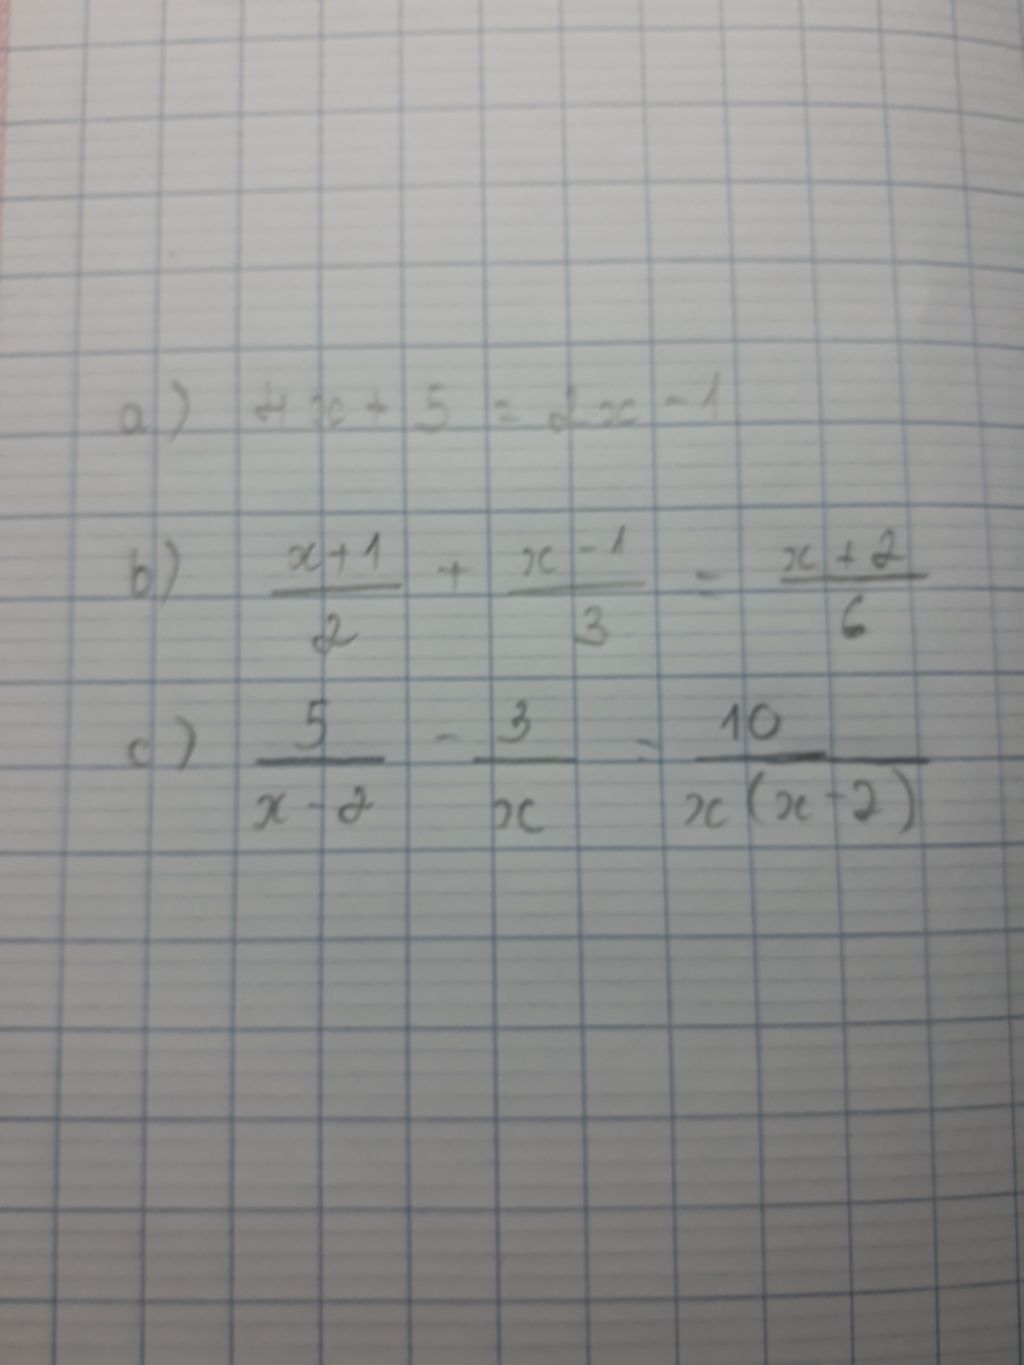 a) 4x + 5 = 2x - 1
b) \frac{x+1}{2} + \frac{x-1}{3} = \frac{x+2}{6}
c) \frac{5}{x-2} - \frac{3}{x} = \frac{10}{x(x-2)}